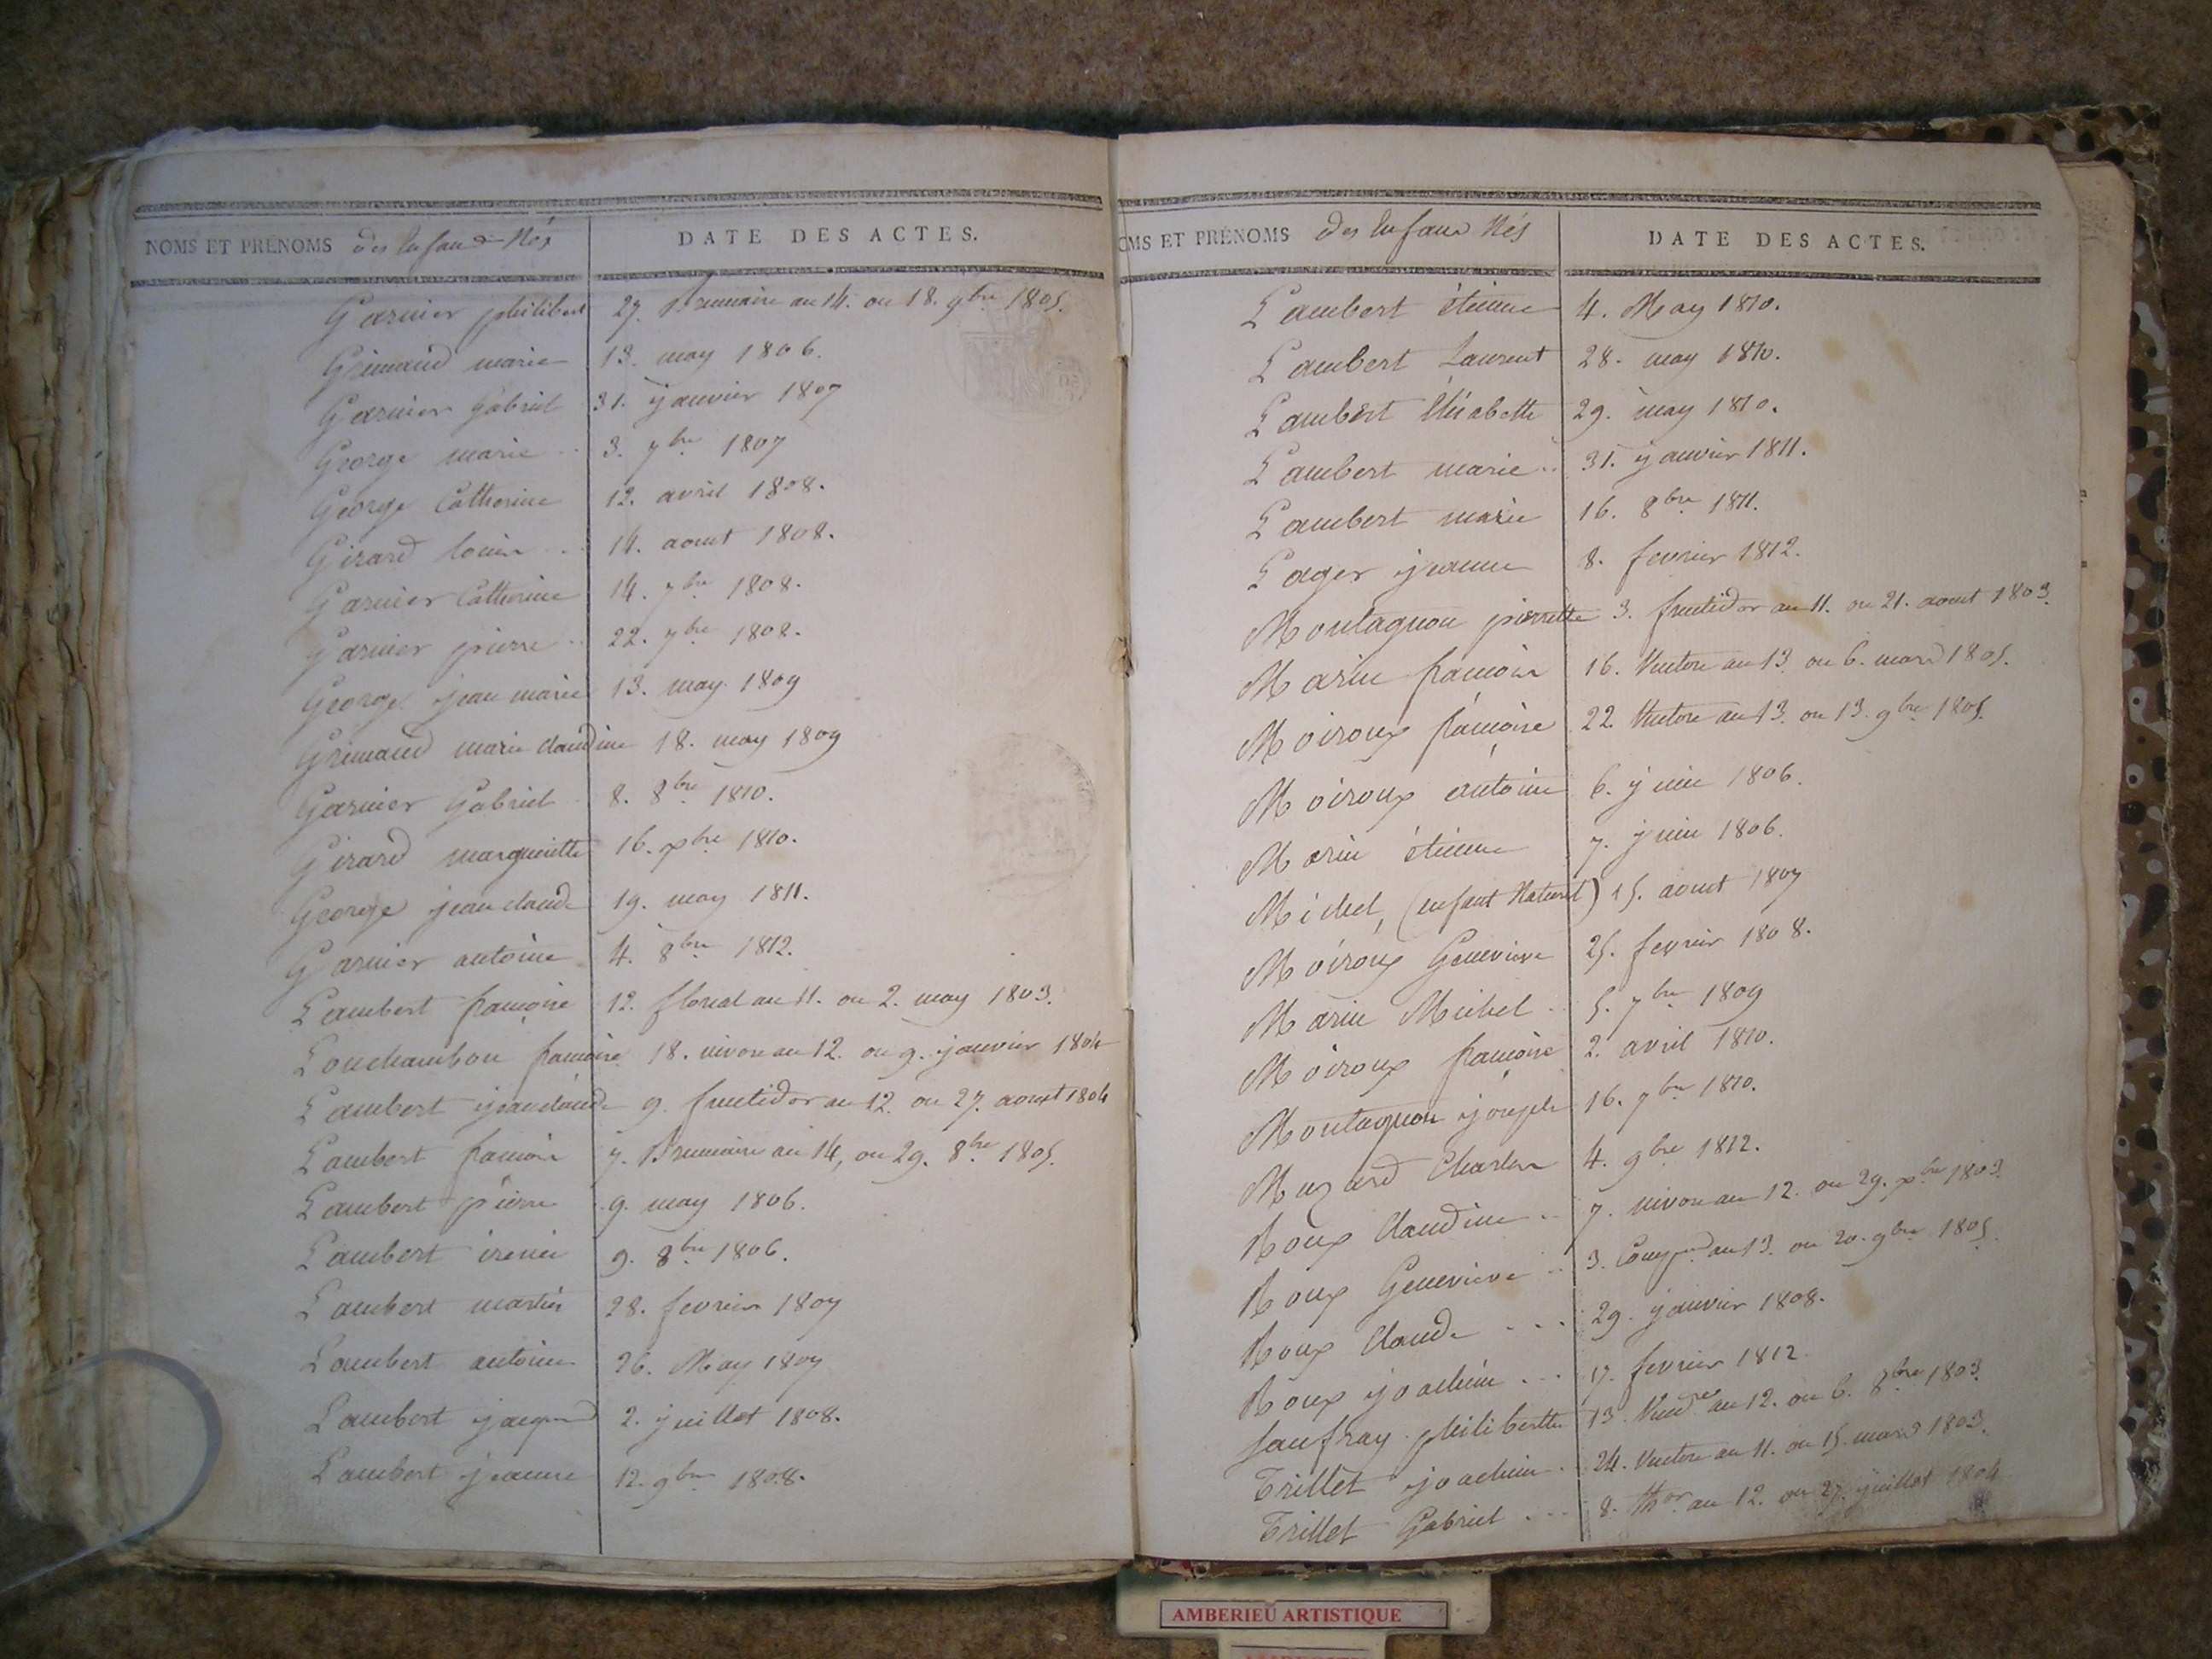 NOMS ET PRÉNOMS des Enfans Nés DATE DES ACTES.
Garnier philibert 27. Brumaire an 14. ou 18. 9bre 1805.
Grimaud marie 13. may 1806.
Garnier Gabriel 31. janvier 1807
George marie .. 3. 7bre 1807
George Catherine 12. avril 1808.
Girard louise ... 14. aout 1808.
Garnier Catherine 14. 7bre 1808.
Garnier pierre .. 22. 7bre 1808.
George jean marie 13. may 1809
Grimaud marie claudine 18. may 1809
Garnier Gabriel . 8. 8bre 1810.
Girard margueritte 16. xbre 1810.
George jean claude 19. may 1811.
Garnier antoine 4. 8bre 1812.
Lambert françoise 12. floreal an 11. ou 2. may 1803.
Louchambon françoise 18. nivose an 12. ou 9. janvier 1804
Lambert jean claude 9. fructidor an 12. ou 27. aoust 1804
Lambert francois 7. Brumaire an 14, ou 29. 8bre 1805.
Lambert pierre 9. may 1806.
Lambert irenée 9. 8bre 1806.
Lambert martin 28. fevrier 1807
Lambert antoine 26. May 1807
Lambert jacques 2. juillet 1808.
Lambert jeanne 12. 9bre 1808.
NOMS ET PRÉNOMS des Enfans Nés DATE DES ACTES.
Lambert étienne 4. May 1810.
Lambert Laurent 28. may 1810.
Lambert Elisabeth 29. may 1810.
Lambert marie .. 31. janvier 1811.
Lambert marie 16. 8bre 1811.
Lager jeanne 8. fevrier 1812.
Montagnon pierrette 3. fructidor an 11. ou 21. aout 1803.
Marin francois 16. Ventose an 13. ou 6. mars 1805.
Moiroux françoise 22. Ventose an 13. ou 13. 9bre 1805.
Moiroux antoine 6. juin 1806.
Marin étienne 7. juin 1806.
Michel, (enfant Naturel) 15. aout 1807
Moiroux Genevieve 25. fevrier 1808.
Marin Michel . 5. 7bre 1809
Moiroux françoise 2. avril 1810.
Montagnon joseph 16. 7bre 1810.
Muzard Charles 4. 9bre 1812.
Roux Claudine .. 7. nivose an 12. ou 29. xbre 1803.
Roux Genevieve .. 3. Comp. an 13. ou 20. 9bre 1805.
Roux Claude ... 29. janvier 1808.
Roux joachim ... 17. fevrier 1812.
Saufray philiberthe 13. Vendre an 12. ou 6. 8bre 1803.
Trillet joachim . 24. Ventose an 11. ou 15. mars 1803.
Trillet Gabriel ... 8. thor an 12. ou 27. juillet 1804
AMBERIEU ARTISTIQUE